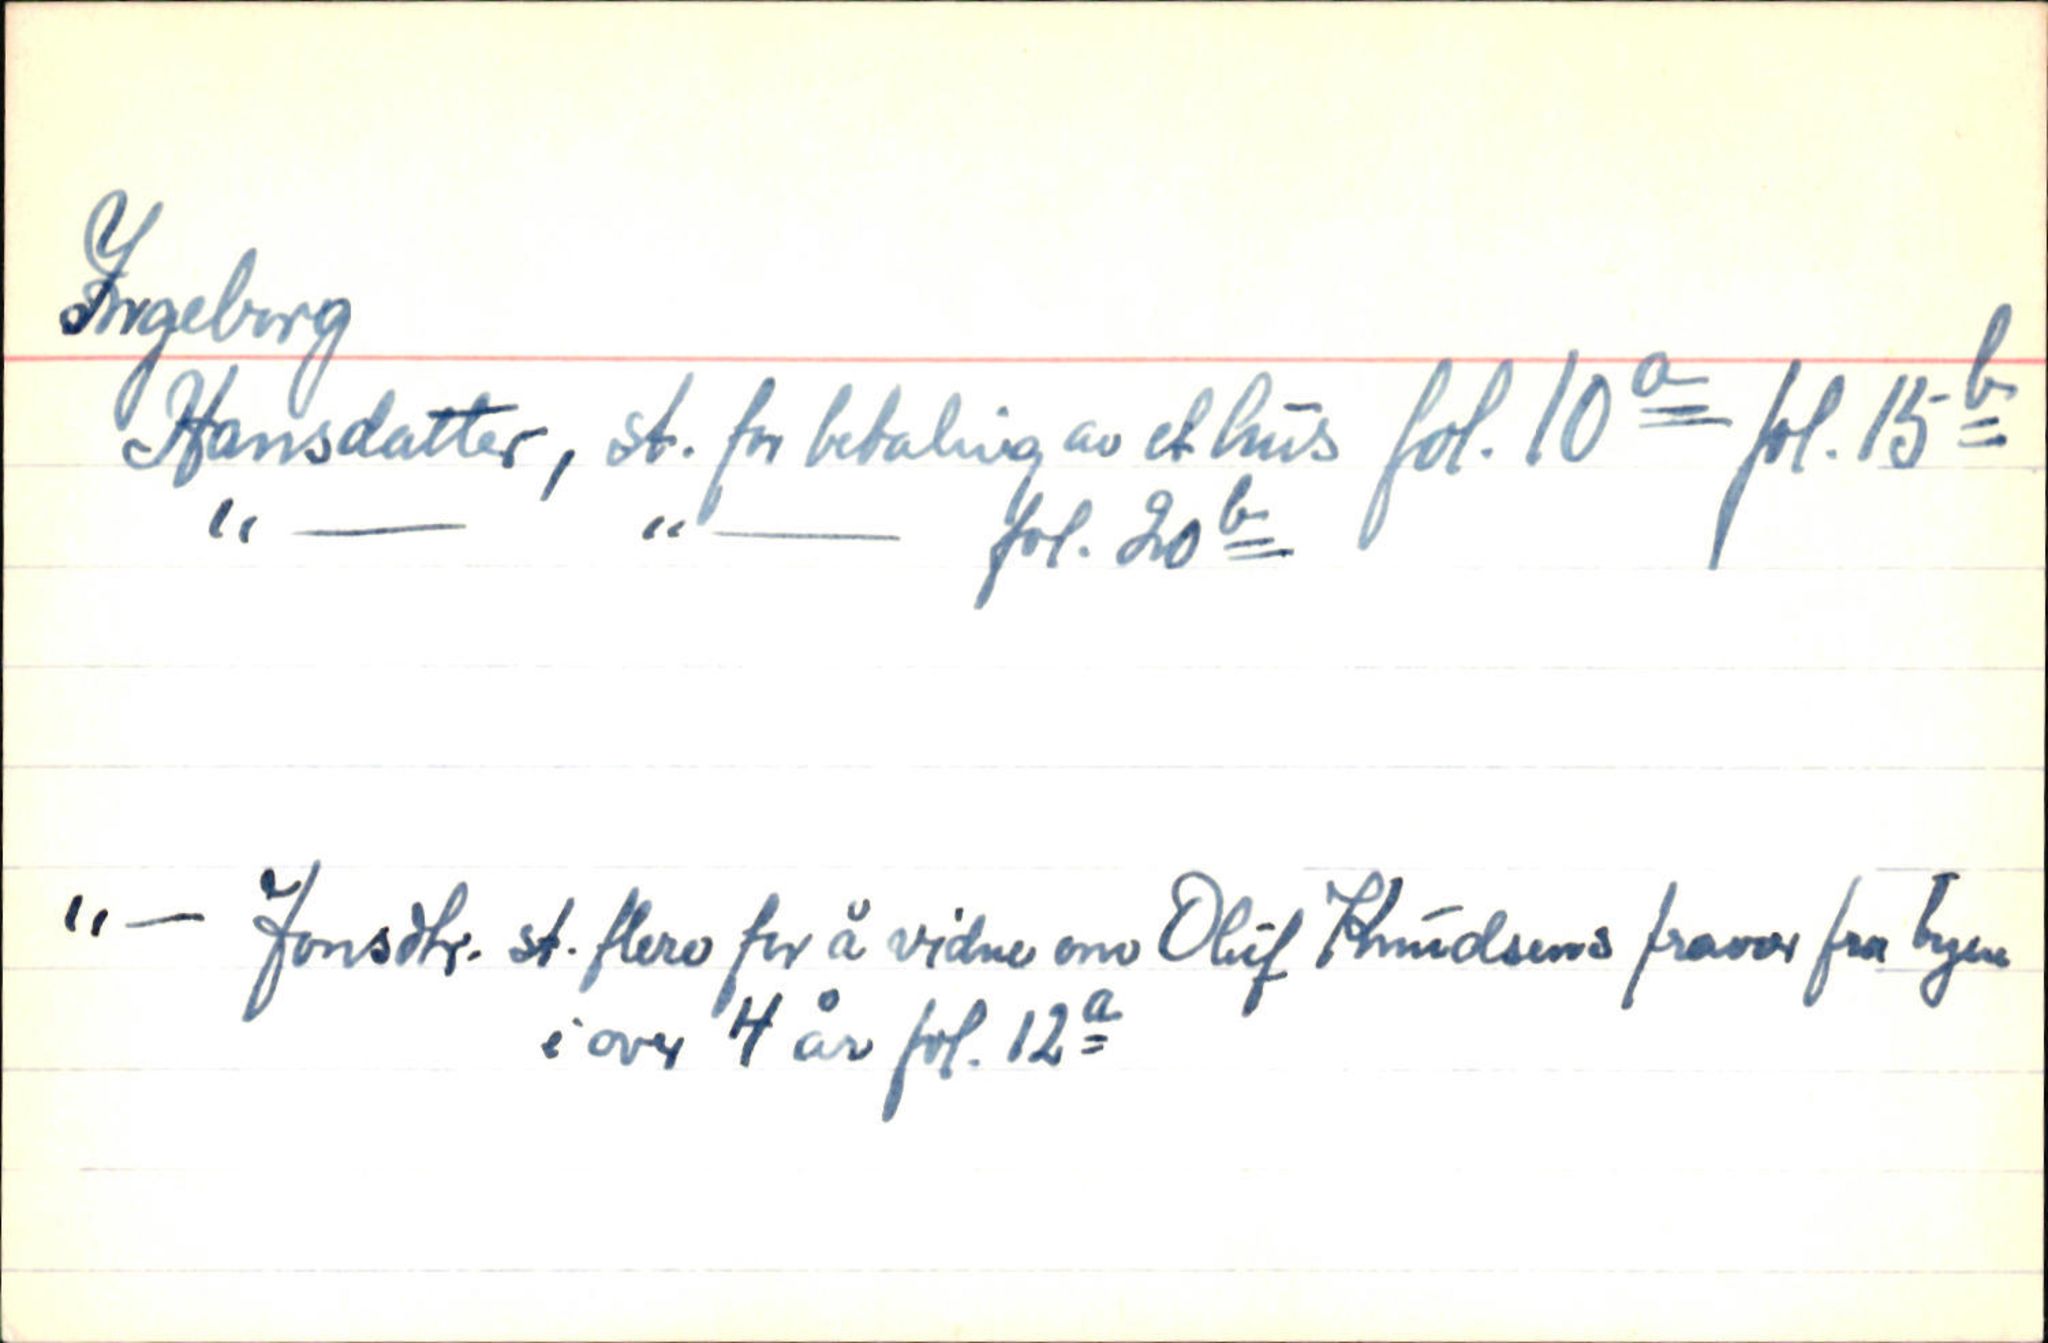 Ingeborg
Hansdatter, st. for betaling av et hus fol. 10ª fol. 15ᵇ
" — " — fol. 20ᵇ
" — Jonsdtr. st. flere for å vidne om Oluf Knudsens fravær fra byen
i over 4 år fol. 12ª